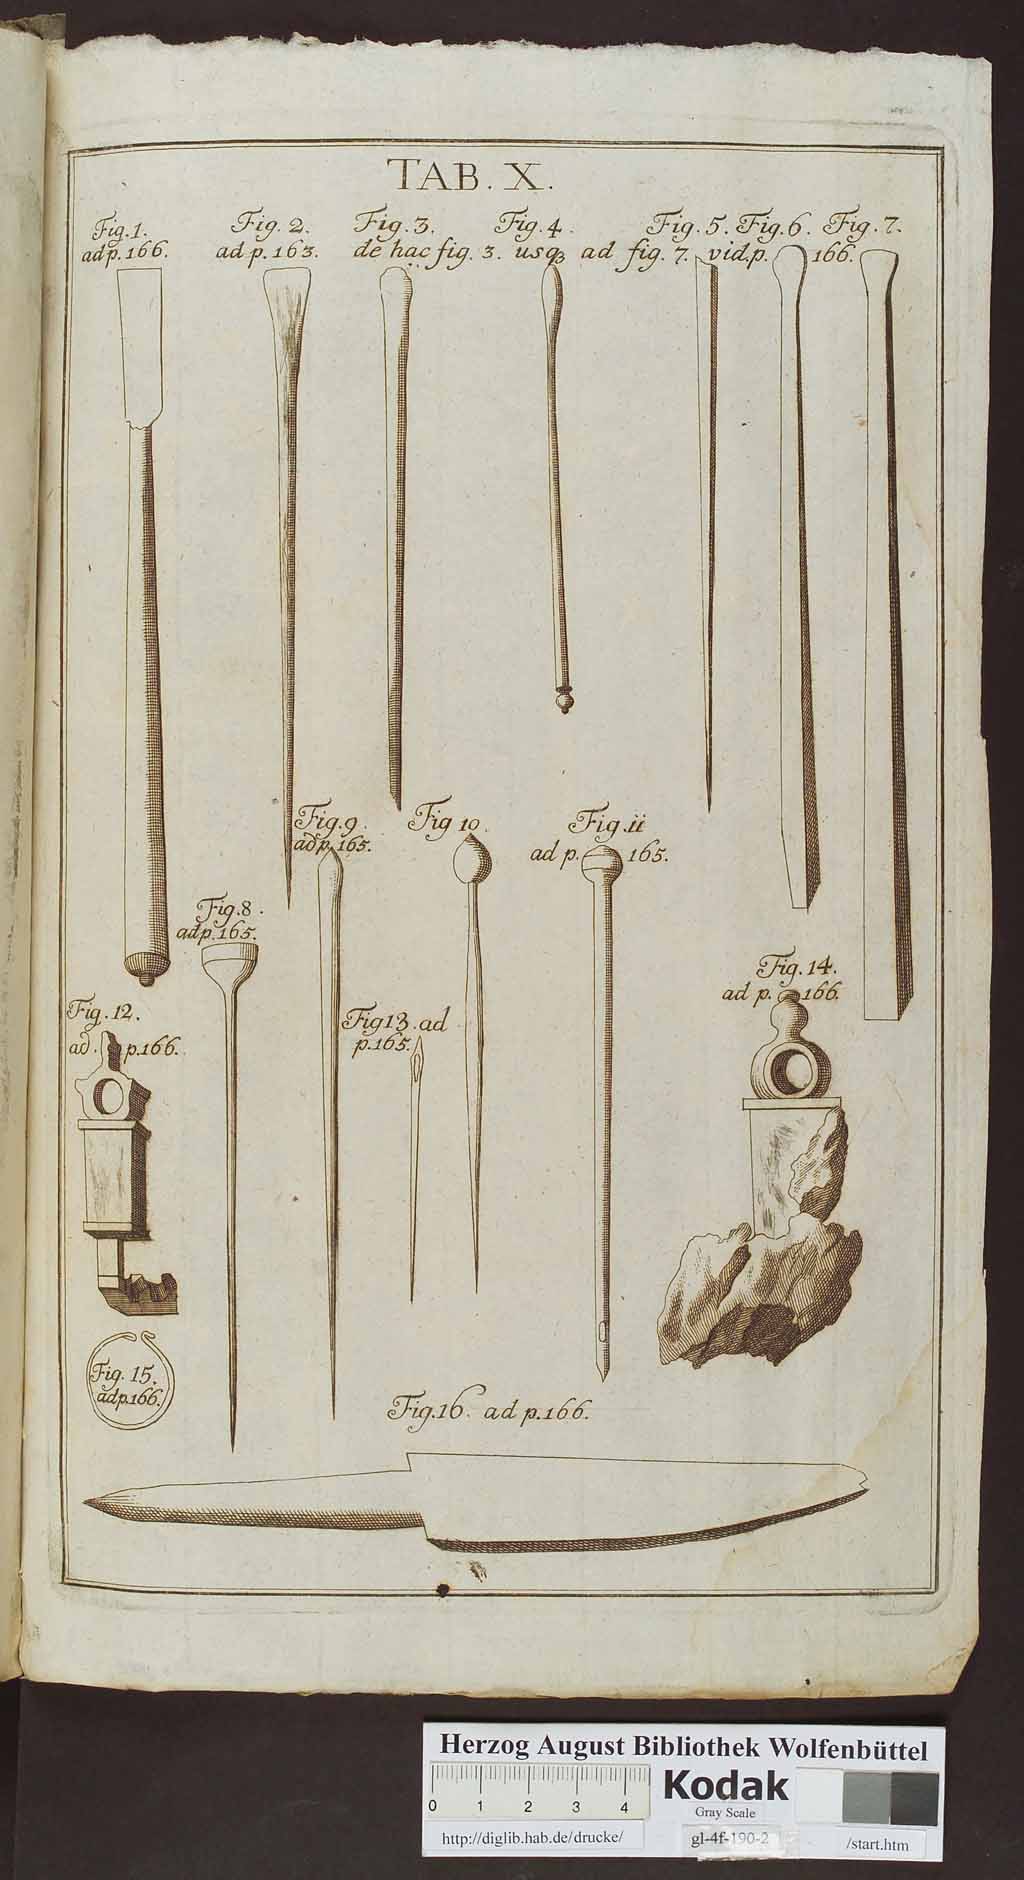 TAB. X.
Fig. 1. Fig. 2. Fig. 3. Fig. 4. Fig. 5. Fig. 6. Fig. 7.
ad p. 166. ad p. 163. de hac fig. 3. usqꝫ ad fig. 7. vid. p. 166.
Fig. 9.
ad p. 165.
Fig 10.
Fig. 11
ad p. 165.
Fig. 8.
ad p. 165.
Fig. 14.
ad p. 166.
Fig. 12.
ad. p. 166.
Fig 13. ad
p. 165.
Fig. 15.
ad p. 166.
Fig. 16. ad p. 166.
Herzog August Bibliothek Wolfenbüttel
0 1 2 3 4
Kodak
Gray Scale
http://diglib.hab.de/drucke/ gl-4f-190-2 /start.htm